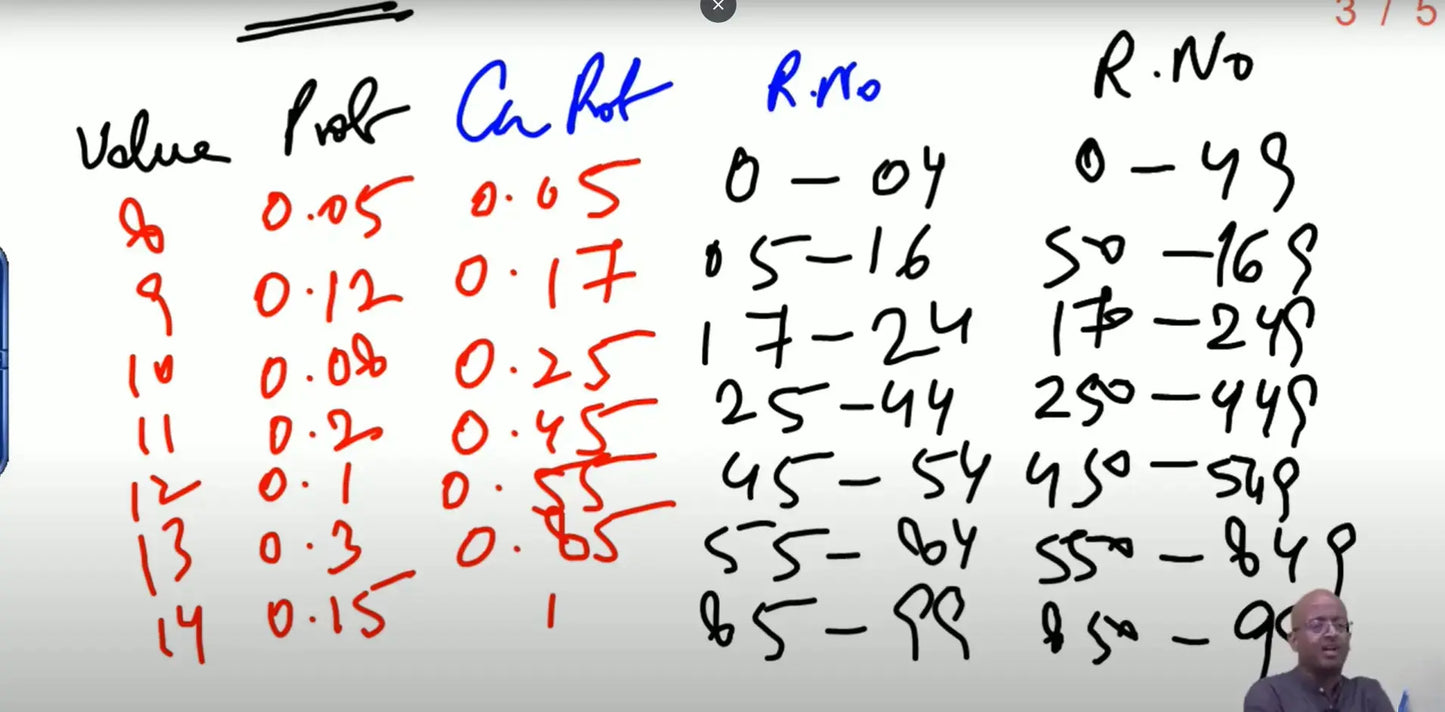 3 / 5
Value Prob Cu Prob R.No R.No
8 0.05 0.05 0 - 04 0 - 49
9 0.12 0.17 05 - 16 50 - 169
10 0.08 0.25 17 - 24 170 - 249
11 0.2 0.45 25 - 44 250 - 449
12 0.1 0.55 45 - 54 450 - 549
13 0.3 0.85 55 - 84 550 - 849
14 0.15 1 85 - 99 850 -